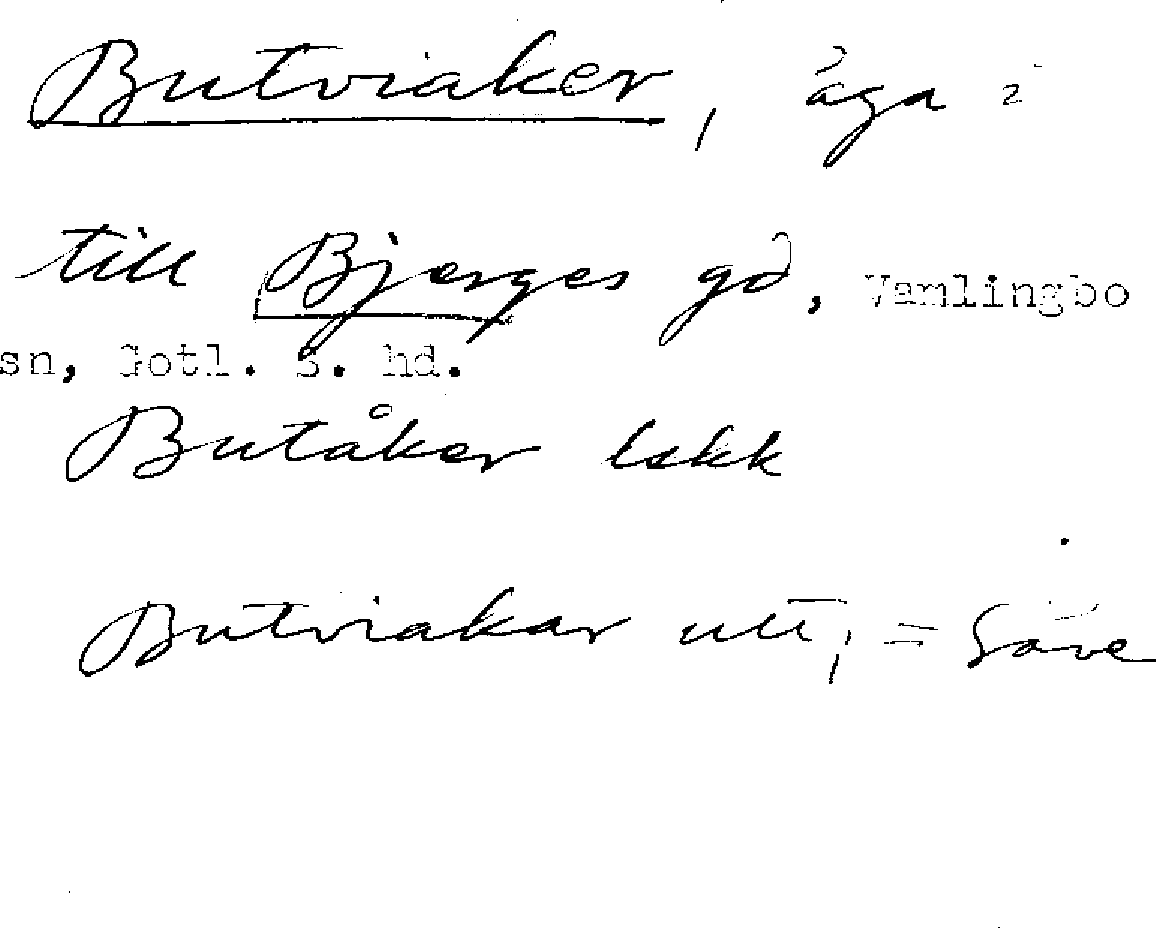 Butviaker, äga i
till Bjerges gd, Vamlingbo
sn, Gotl. S. hd.
Butåker lskk
Butviakar utt, = Säve